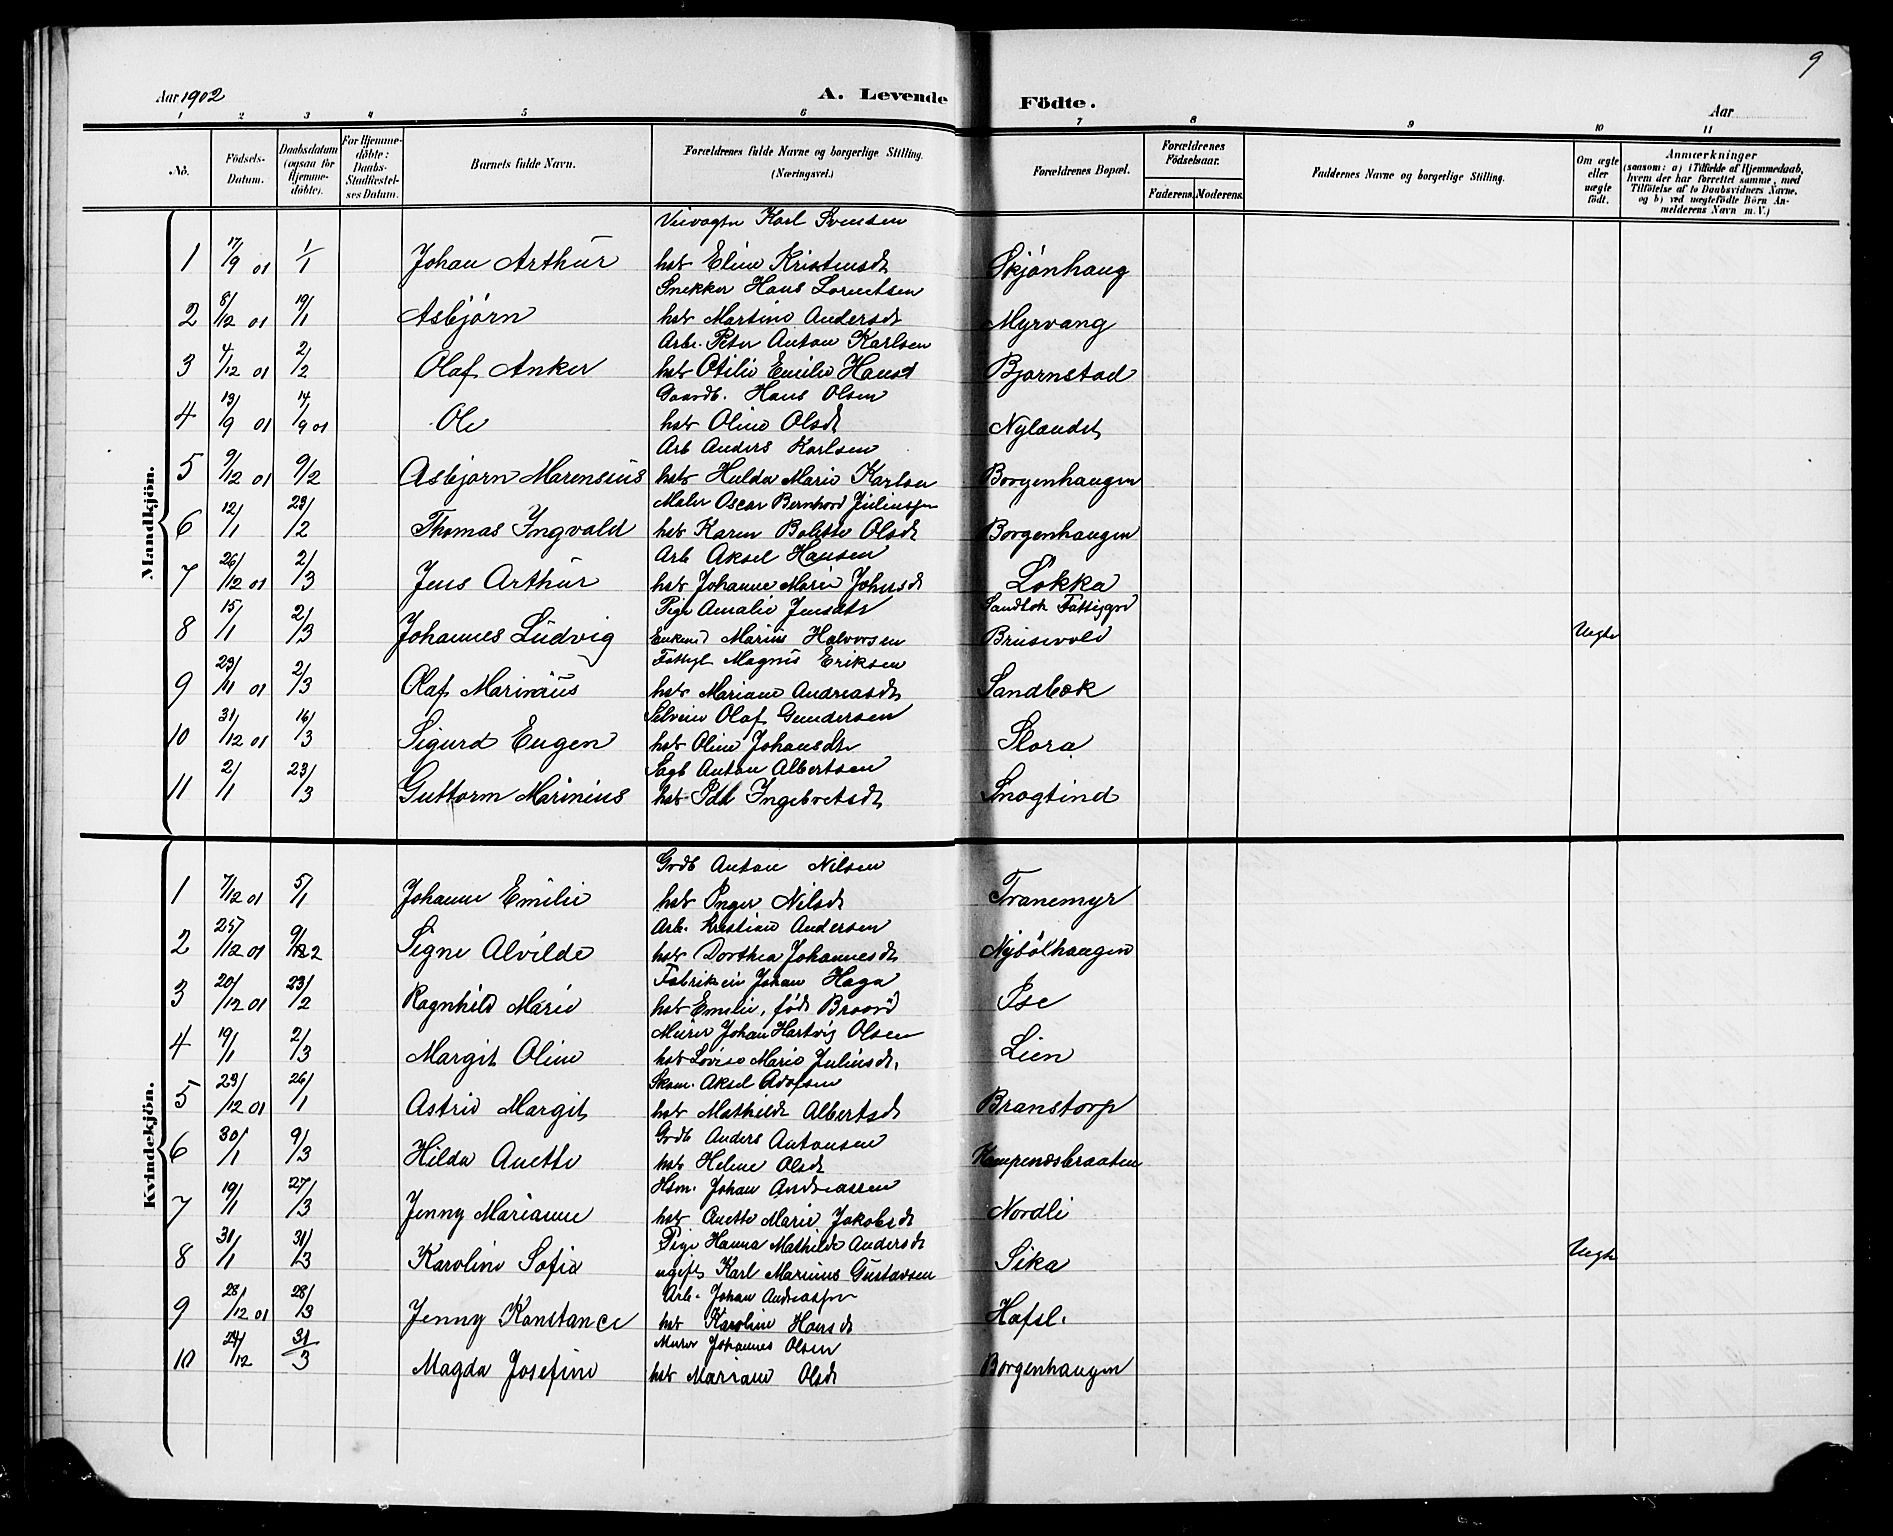 9
Aar 1902
A. Levende Födte.
Aar
1 2 3 4 5 6 7 8 9 10 11
No.
Födsels-Datum.
Daabsdatum (ogsaa for Hjemmedöbte).
For Hjemmedöbte: Daabs-Stadfæstelses Datum.
Barnets fulde Navn.
Forældrenes fulde Navne og borgerlige Stilling. (Næringsvei.)
Forældrenes Bopæl.
Forældrenes Födselsaar.
Faderens. Moderens.
Faddernes Navne og borgerlige Stilling.
Om ægte eller uægte födt.
Anmærkninger
(saasom: a) i Tilfælde af Hjemmedaab, hvem der har forrettet samme, med Tilföielse af to Daabsvidners Navne, og b) ved uægtefödte Börn Anmelderens Navn m. V.)
Mandkjön.
Veivogter Karl Svensen
1 17/9 01 1/1 Johan Arthur hst Eline Kristensdt Skjönhaug
Snekker Hans Lorentsen
2 8/12 01 19/1 Asbjörn hst Martine Andersdt Myrvang
Arb. Peter Anton Karlsen
3 4/12 01 2/2 Olaf Anker hst Otilie Emilie Hansd Bjørnstad
Gaardb. Hans Olsen
4 13/9 01 14/9 01 Ole hst Oline Olsdt Nylandet
Arb Anders Karlsen
5 9/12 01 9/2 Asbjørn Marensius hst Hulda Marie Karlsen Borgenhaugen
Maler Oscar Bernhard Juliussen
6 12/1 23/2 Thomas Ingvald hst Karen Bolette Olsdt Borgenhaugen
Arb Aksel Hansen
7 26/12 01 2/3 Jens Arthur hst Johanne Marie Johnsdt Løkka
Pige Amalie Jensdtr Sandbek Fattiggrd
8 15/1 2/3 Johannes Ludvig Enkemd Marius Halvorsen Brusevold Uegte
Fattigl Magnus Eriksen
9 23/11 01 2/3 Olaf Marinius hst Mariane Andreasdt Sandbæk
Selveier Olaf Gundersen
10 31/12 01 16/3 Sigurd Eugen hst Oline Johansdtr Slora
Sagb Anton Albertsen
11 2/1 23/3 Guttorm Marinius hst Ingebretsdt Snogtind
Kvindekjön.
Grdb Anton Nilsen
1 7/12 01 5/1 Johanne Emilie hst Inger Nilsdt Tranemyr
Arb. Kristian Andersen
2 25/12 01 9/2 Signe Alvilde hst Dorthea Johannesdt Nybölhaugen
Fabrikeier Johan Haga
3 20/12 01 23/2 Ragnhild Marie hst Emilie, född Ise
Murer Johan Hartvig Olsen
4 19/1 2/3 Margit Oline hst Lovise Marie Juliusdt. Lien
Skom. Aksel Adofsen
5 29/12 01 26/1 Astrid Margit hst Mathilde Albertsdt Branstorp
Grdb Anders Antonsen
6 30/1 9/3 Hilda Anette hst Helene Olsdt Kampenæsbraaten
Hsm. Johan Andreassen
7 19/1 27/3 Jenny Marianne hst Anette Marie Jakobsdt Nordli
Pige Hanna Mathilde Andersdt
8 31/1 31/3 Karoline Sofia ugift Karl Marinus Gustavsen Sika Uegte
Arb. Johan Andreassen
9 28/12 01 28/3 Jenny Konstance hst Karoline Hansdt Hafsl.
Murer Johannes Olsen
10 29/12 31/3 Magda Josefine hst Mariane Olsdt Borgenhaugen